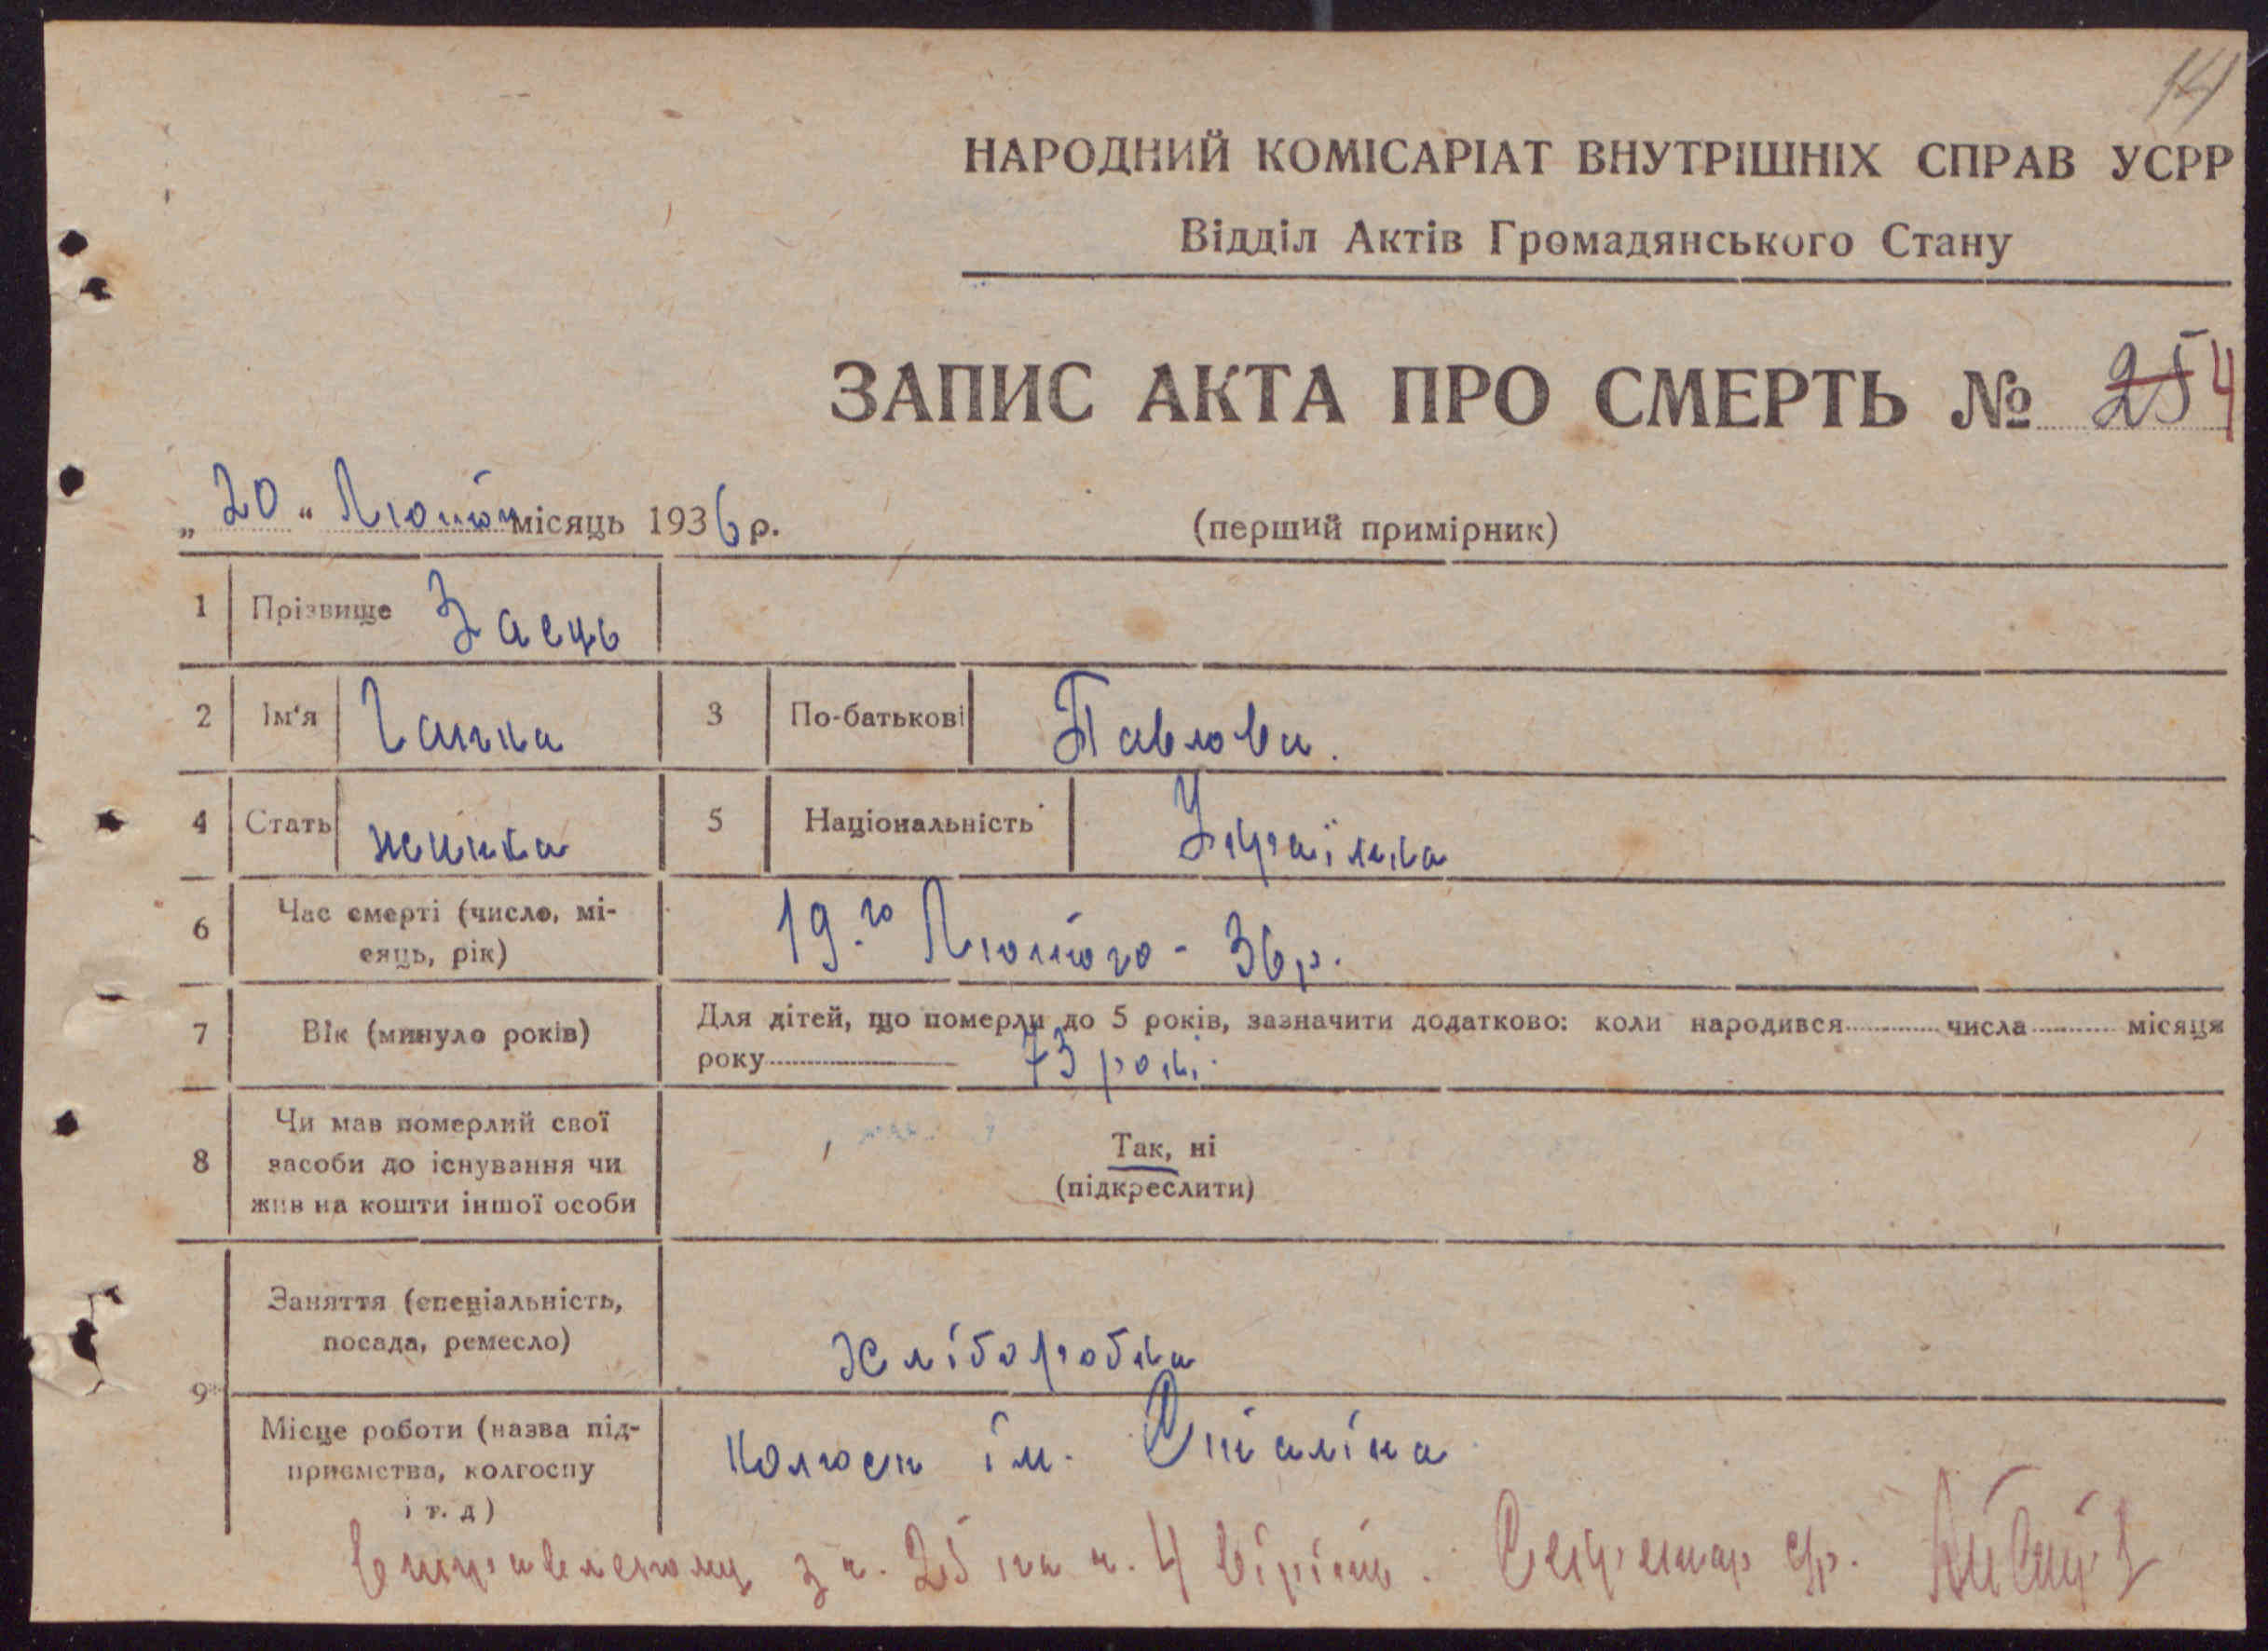 14
НАРОДНИЙ КОМІСАРІАТ ВНУТРІШНІХ СПРАВ УСРР
Відділ Актів Громадянського Стану
ЗАПИС АКТА ПРО СМЕРТЬ № 25 4
„20“ Лютого місяць 1936 р. (перший примірник)
1 Прізвище Заець
2 Ім'я Ганна 3 По-батькові Павлова.
4 Стать жінка 5 Національність Українка
6 Час смерті (число, мі-
сяць, рік) 19.го Лютого - 36 р.
7 Вік (минуло років) Для дітей, що померли до 5 років, зазначити додатково: коли народився числа місяця
року 73 рокі.
8 Чи мав померлий свої
засоби до існування чи
жив на кошти іншої особи
Так, ні
(підкреслити)
9 Заняття (спеціальність,
посада, ремесло) хліборобка
Місце роботи (назва під-
приємства, колгоспу
і т. д) колгосп ім. Сталіна
Виправленому з ч. 25 на ч. 4 вірить. Секретар с/р.